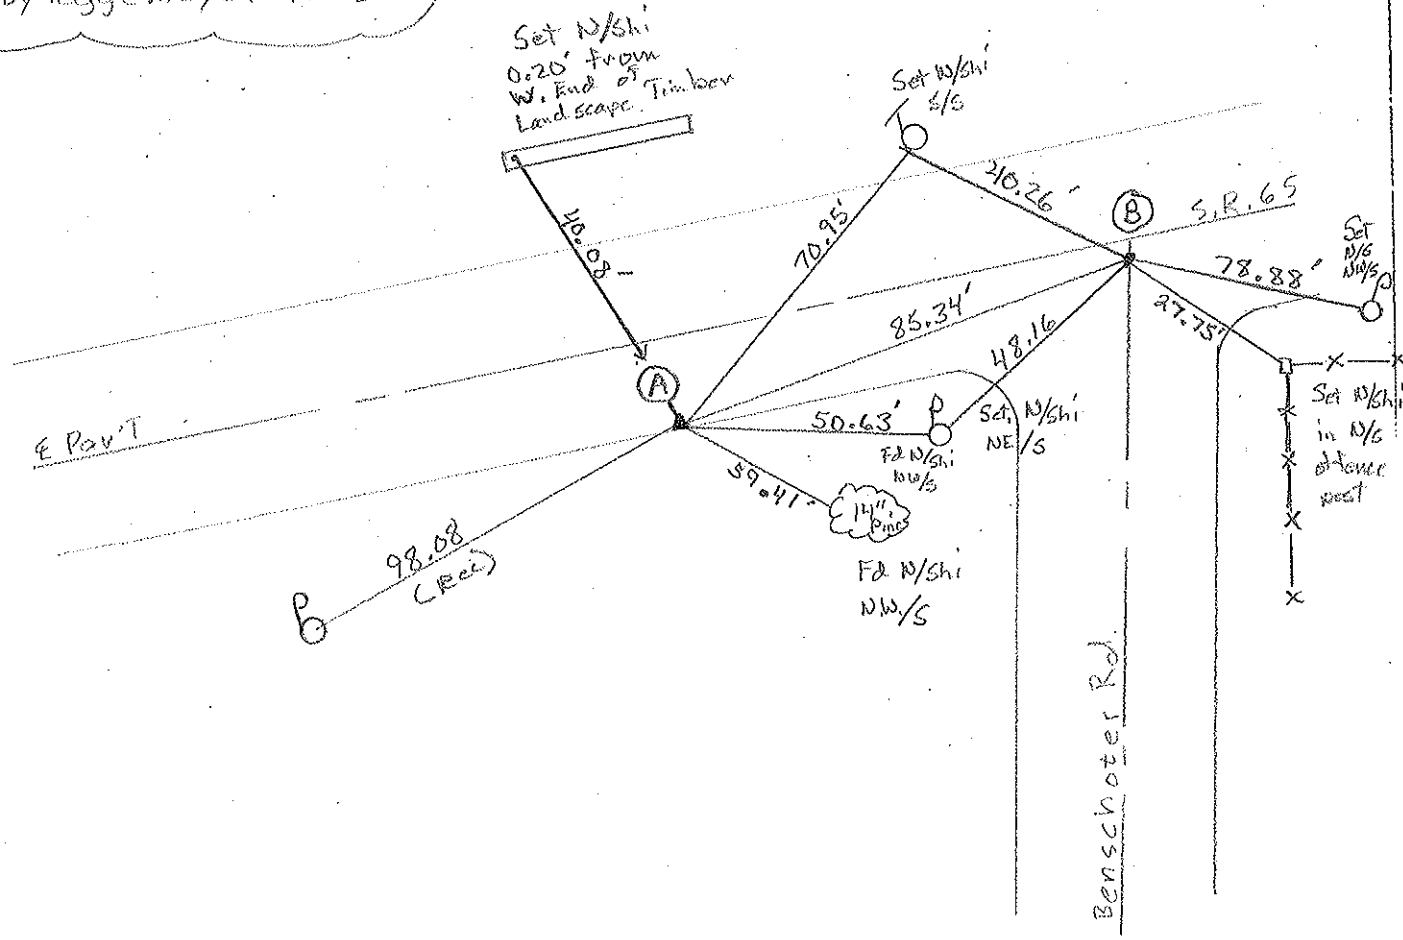 Set N/Shi
0.20' from
W. End of
Landscape Timber
Set N/Shi
S/S
40.08
70.95'
40.26'
B
S.R. 65
Set
N/S
NW/S
78.88'
27.75'
85.34'
48.16
A
50.63'
Set N/Shi
NE/S
Fd N/Shi
NW/S
Set N/Shi
in N/S
of fence
post
59.41'
14"
Pine
Fd N/Shi
N.W./S
℄ Pav'T
98.08
(Rec)
Benschoter Rd.